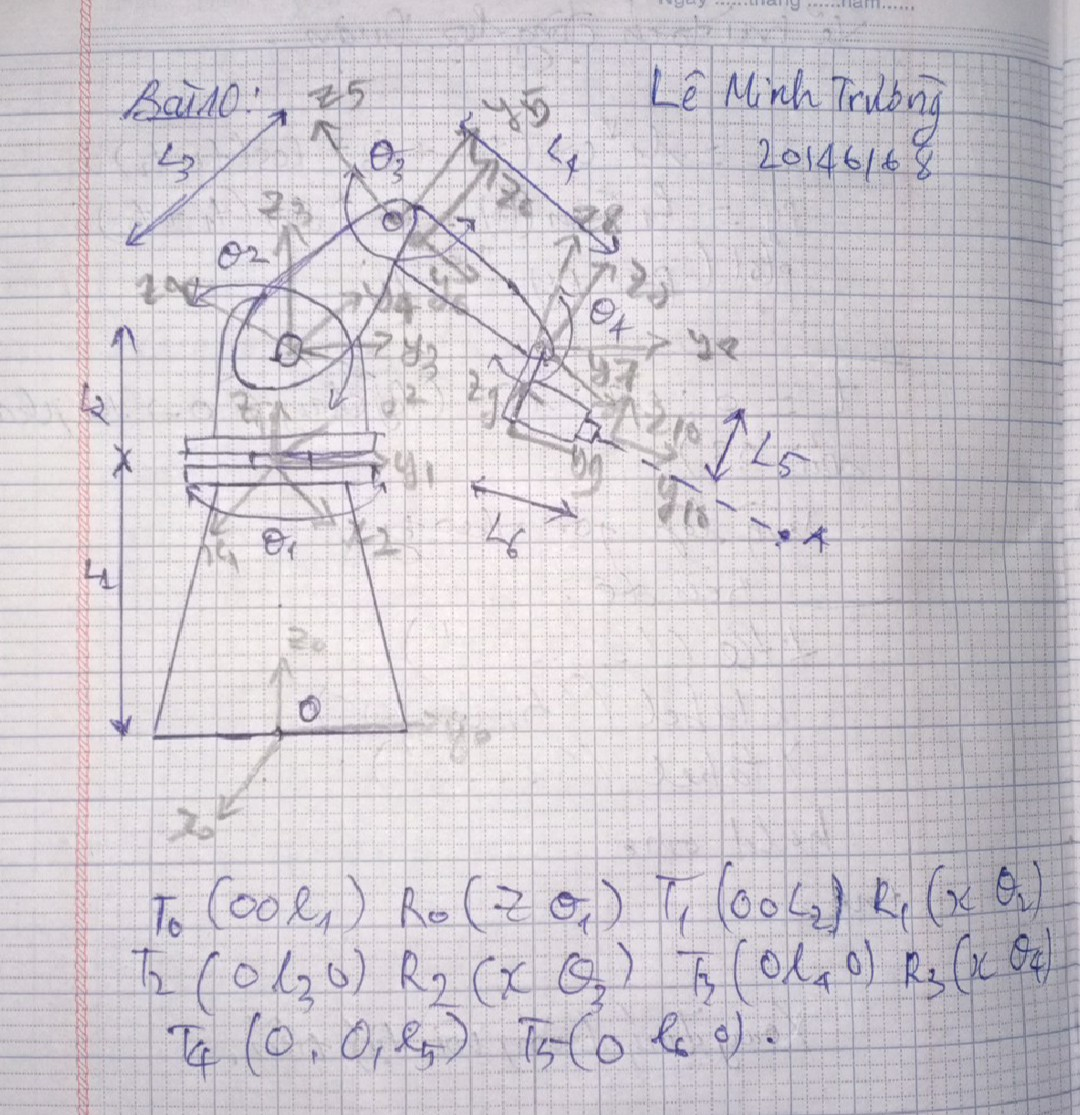 Ngày ......tháng ......năm......
Bài 10: Lê Minh Trường
20146168
L3
z5
y5
θ3
L4
z6
z3
z8
θ2
z5
θ4
y4
y3
y8
y7
L2
z9
z10
y1
y9
L5
y10
L6
x2
θ1
x1
A
L1
z0
O
y0
x0
T0 (00l1) R0 (z θ1) T1 (00L2) R1 (x θ2)
T2 (0l30) R2 (x θ3) T3 (0l40) R3 (x θ4)
T4 (0, 0, l5) T5 (0 l6 0).